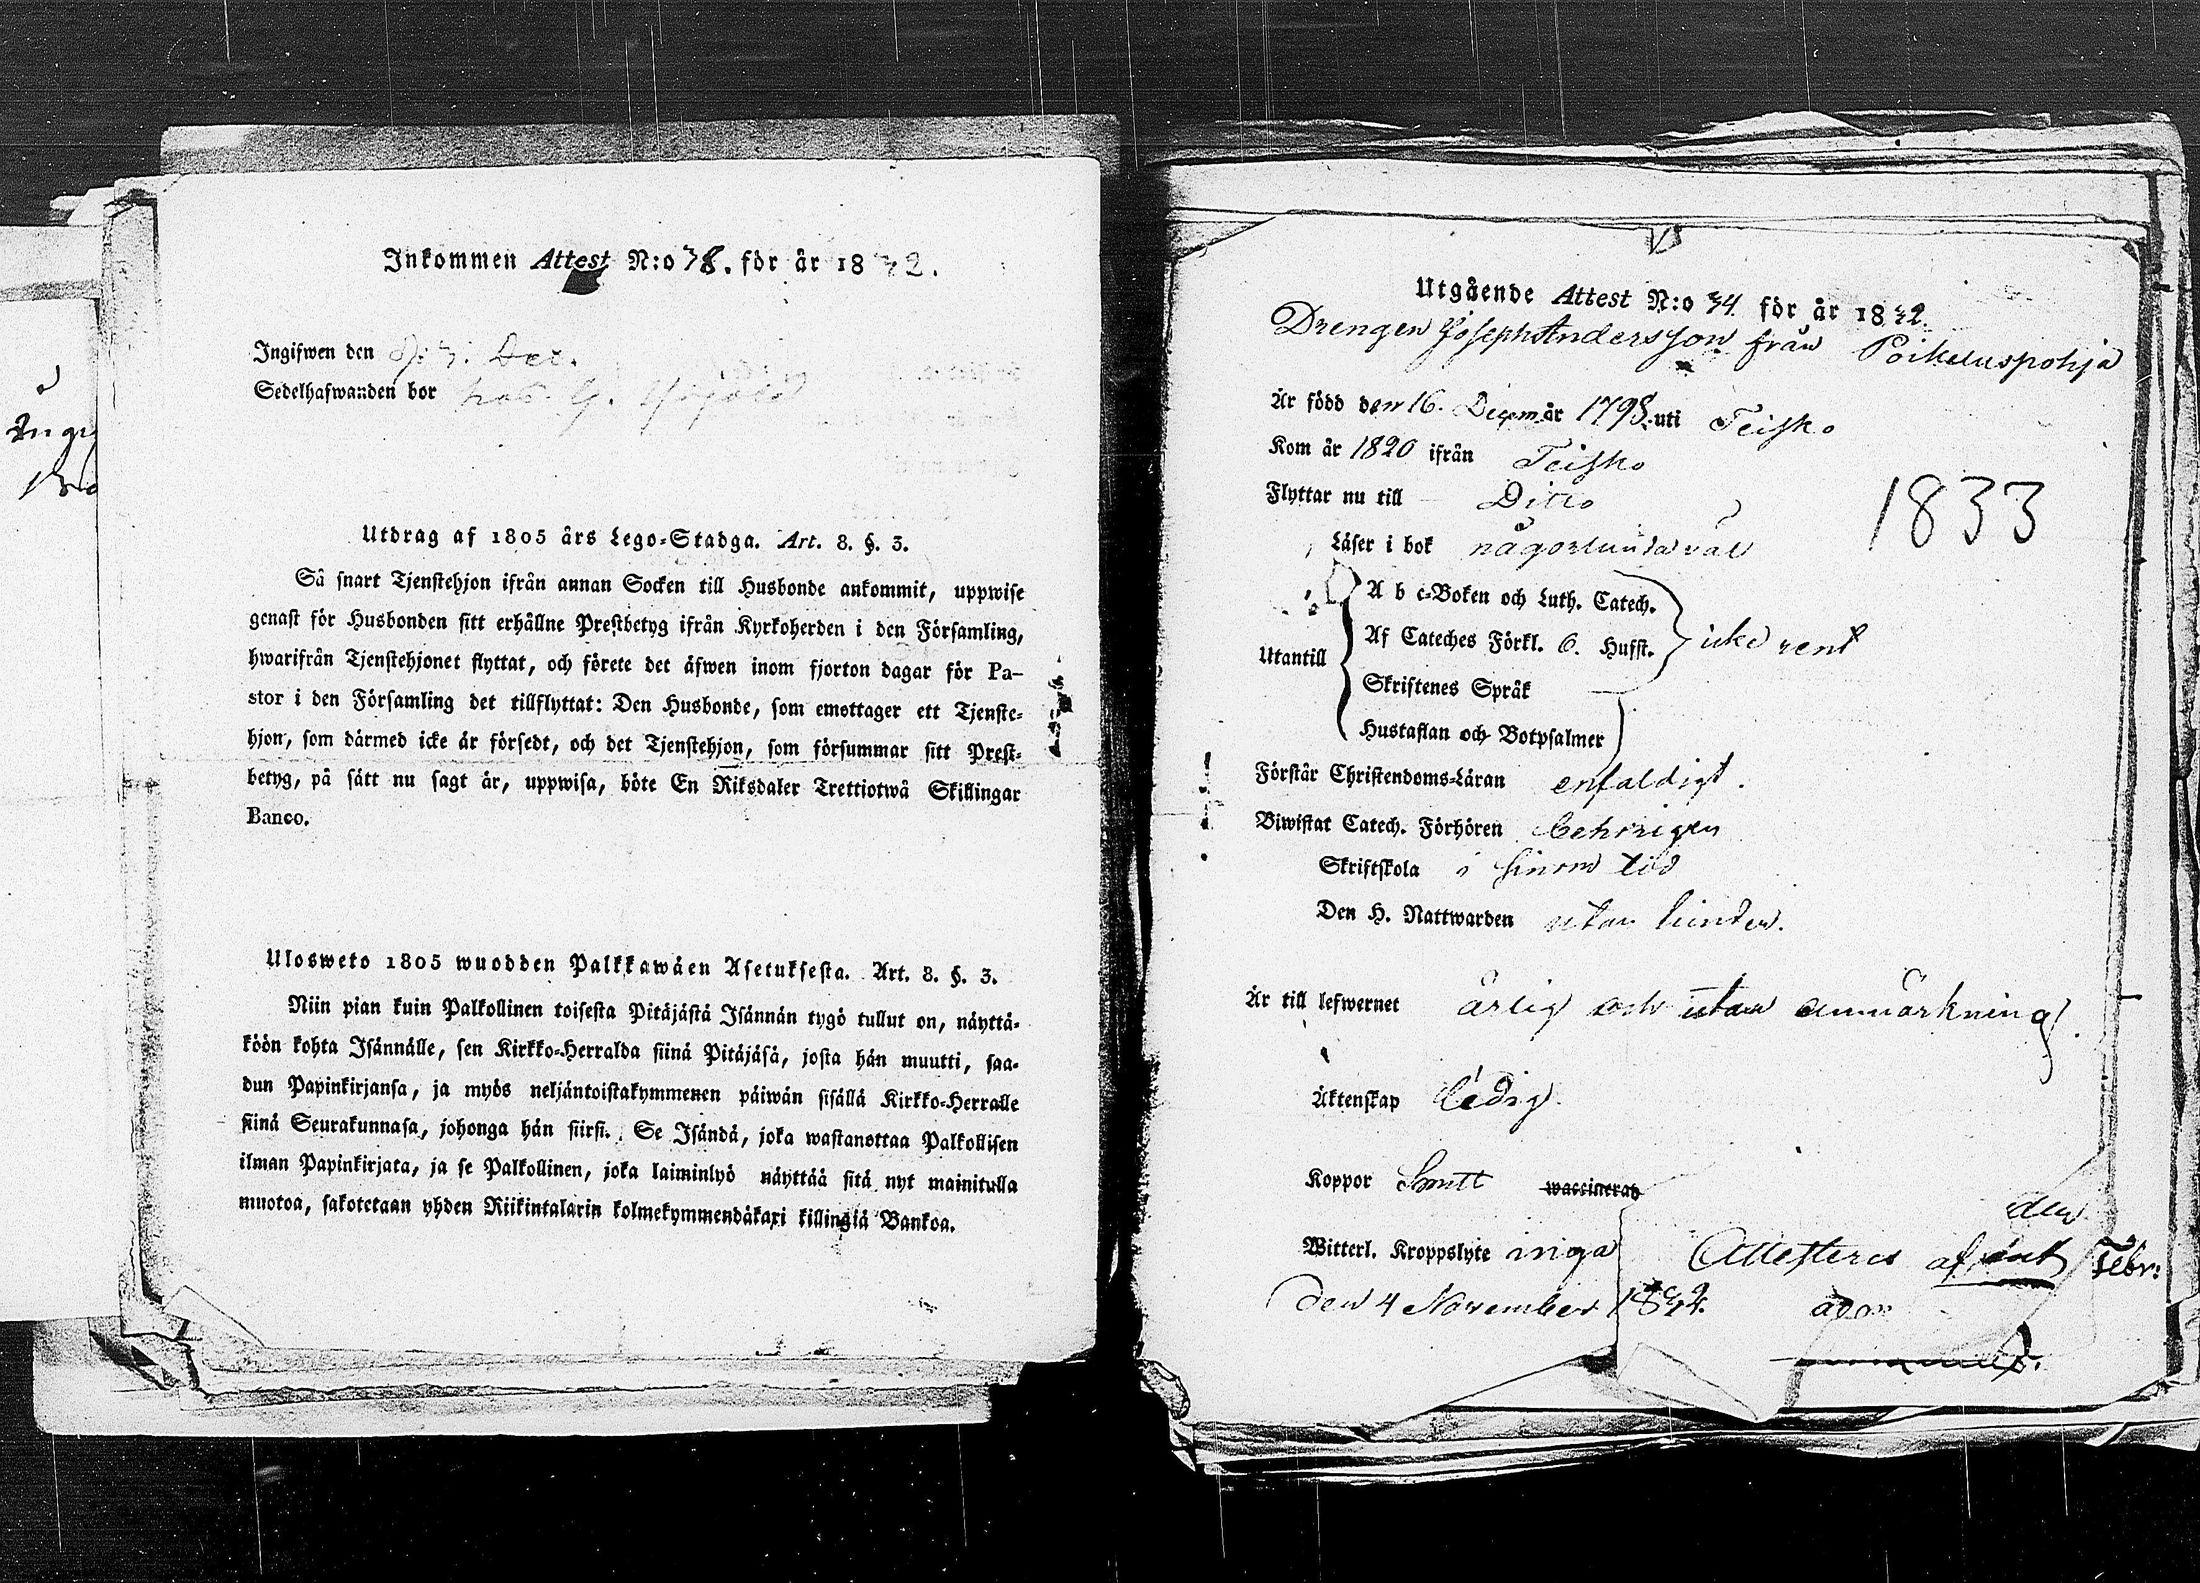 Inkommen Attest N:o 38. för år 1832.
Ingifwen den Dec.
Sedelhafwanden bor hos G.
Utdrag af 1805 års Lego-Stadga. Art. 8. §. 3.
Så snart Tjenstehjon ifrån annan Socken till Husbonde ankommit, uppwise
genast för Husbonden sitt erhållne Prestbetyg ifrån Kyrkoherden i den Församling,
hwarifrån Tjenstehjonet flyttat, och förete det äfwen inom fjorton dagar för Pa-
stor i den Församling det tillflyttat: Den Husbonde, som emottager ett Tjenste-
hjon, som därmed icke är försedt, och det Tjenstehjon, som försummar sitt Prest-
betyg, på sätt nu sagt är, uppwisa, böte En Riksdaler Trettiotwå Skillingar
Banco.
Ulosweto 1805 wuodden Palkkawäen Asetuksesta. Art. 8. §. 3.
Niin pian kuin Palkollinen toisesta Pitäjästä Isännän tygö tullut on, näyttä-
köön kohta Isännälle, sen Kirkko-Herralda siinä Pitäjäsä, josta hän muutti, saa-
dun Papinkirjansa, ja myös neljäntoistakymmenen päiwän sisällä Kirkko-Herralle
siinä Seurakunnasa, johonga hän siirsi. Se Isändä, joka wastanottaa Palkollisen
ilman Papinkirjata, ja se Palkollinen, joka laiminlyö näyttää sitä nyt mainitulla
muotoa, sakotetaan yhden Riikintalarin kolmekymmendäkaxi killingiä Bankoa.
Utgående Attest N:o 34 för år 1832.
Drengen Joseph Andersson från Poikeluspohja
Är född den 16. Decem. år 1798. uti Teisko
Kom år 1820 ifrån Teisko
Flyttar nu till Ditto
1833
Läser i bok någorlunda väl
A b c-Boken och Luth. Catech.
Af Cateches Förkl. 6. Hufst. icke rent
Utantill
Skriftenes Språk
Hustaflan och Botpsalmer
Förstår Christendoms-Läran enfaldigt.
Biwistat Catech. Förhören behörigen
Skriftskola i sinom tid
Den H. Nattwarden utan hinder.
Är till lefwernet ärlig och utan anmärkning.
Äktenskap ledig.
Koppor haft waccinerad
Witterl. Kroppslyte inga
den
Attesteras af Febr:
den 4 November 1832.